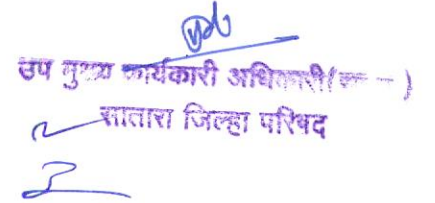 उप मुख्य कार्यकारी अधिकारी
सातारा जिल्हा परिषद